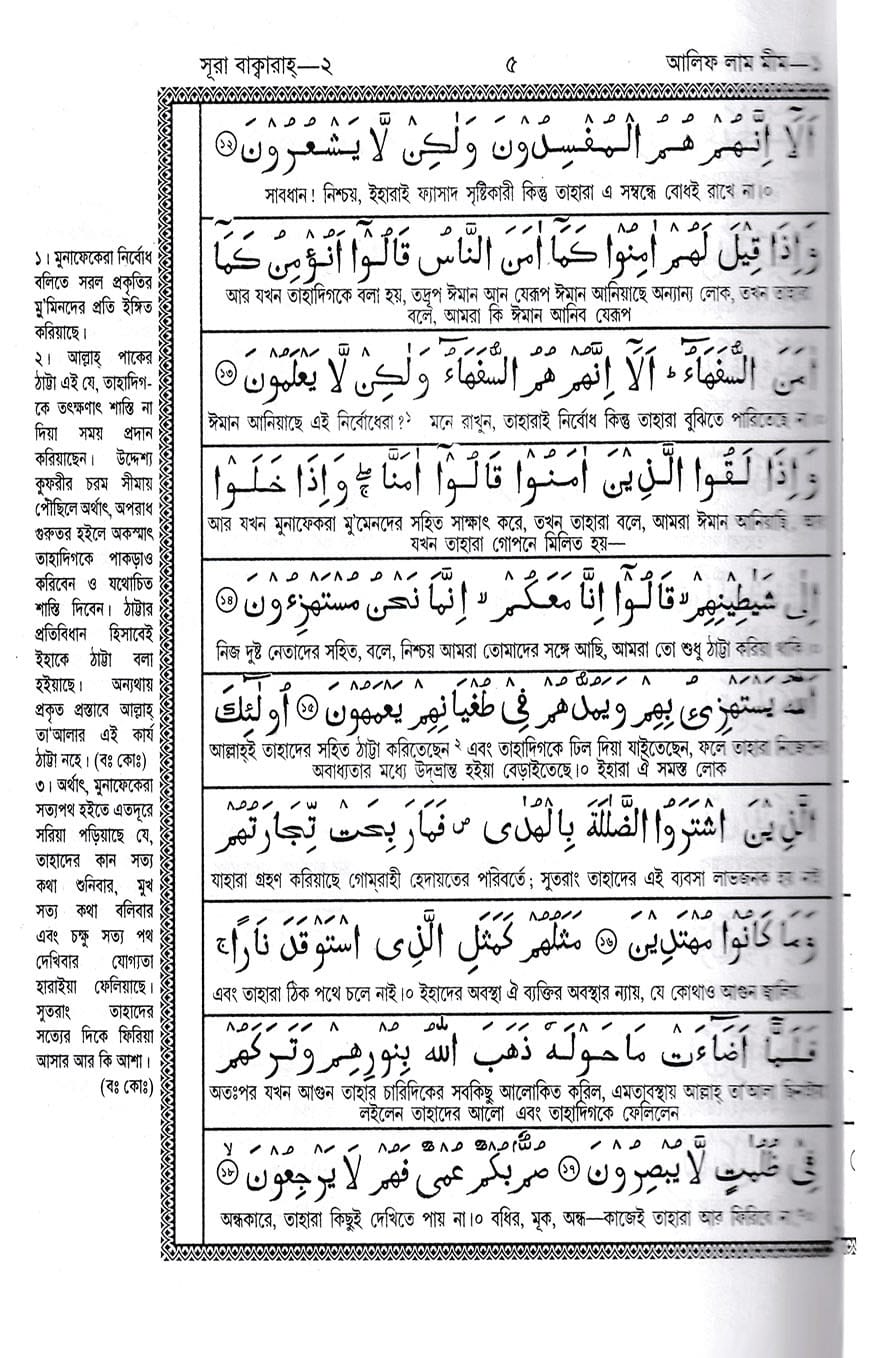 সূরা বাক্বারাহ্—২ ৫ আলিফ লাম মীম—১
اَلَاۤ اِنَّهُمْ هُمُ الْمُفْسِدُوْنَ وَلٰكِنْ لَّا يَشْعُرُوْنَ ১২
সাবধান! নিশ্চয়, ইহারাই ফ্যাসাদ সৃষ্টিকারী কিন্তু তাহারা এ সম্বন্ধে বোধই রাখে না।০
وَاِذَا قِيْلَ لَهُمْ اٰمِنُوْا كَمَاۤ اٰمَنَ النَّاسُ قَالُوْۤا اَنُؤْمِنُ كَمَاۤ
আর যখন তাহাদিগকে বলা হয়, তদ্রূপ ঈমান আন যেরূপ ঈমান আনিয়াছে অন্যান্য লোক, তখন তাহারা
বলে, আমরা কি ঈমান আনিব যেরূপ
اٰمَنَ السُّفَهَآءُ ؕ اَلَاۤ اِنَّهُمْ هُمُ السُّفَهَآءُ وَلٰكِنْ لَّا يَعْلَمُوْنَ ১৩
ঈমান আনিয়াছে এই নির্বোধেরা?১ মনে রাখুন, তাহারাই নির্বোধ কিন্তু তাহারা বুঝিতে পারিতেছে না।০
وَاِذَا لَقُوا الَّذِيْنَ اٰمَنُوْا قَالُوْۤا اٰمَنَّا ۖۚ وَاِذَا خَلَوْا
আর যখন মুনাফেকরা মু'মেনদের সহিত সাক্ষাৎ করে, তখন তাহারা বলে, আমরা ঈমান আনিয়াছি, আর
যখন তাহারা গোপনে মিলিত হয়—
اِلٰى شَيٰطِيْنِهِمْ ۙ قَالُوْۤا اِنَّا مَعَكُمْ ۙ اِنَّمَا نَحْنُ مُسْتَهْزِءُوْنَ ১৪
নিজ দুষ্ট নেতাদের সহিত, বলে, নিশ্চয় আমরা তোমাদের সঙ্গে আছি, আমরা তো শুধু ঠাট্টা করিয়া থাকি।০
اَللّٰهُ يَسْتَهْزِئُ بِهِمْ وَيَمُدُّهُمْ فِيْ طُغْيَانِهِمْ يَعْمَهُوْنَ ১৫ اُولٰٓئِكَ
আল্লাহ্ই তাহাদের সহিত ঠাট্টা করিতেছেন২ এবং তাহাদিগকে ঢিল দিয়া যাইতেছেন, ফলে তাহারা নিজেদের
অবাধ্যতার মধ্যে উদ্‌ভ্রান্ত হইয়া বেড়াইতেছে।০ ইহারা ঐ সমস্ত লোক
الَّذِيْنَ اشْتَرَوُا الضَّلٰلَةَ بِالْهُدٰى ۪ فَمَا رَبِحَتْ تِّجَارَتُهُمْ
যাহারা গ্রহণ করিয়াছে গোম্‌রাহী হেদায়তের পরিবর্তে; সুতরাং তাহাদের এই ব্যবসা লাভজনক হয় নাই
وَمَا كَانُوْا مُهْتَدِيْنَ ১৬ مَثَلُهُمْ كَمَثَلِ الَّذِى اسْتَوْقَدَ نَارًا ۚ
এবং তাহারা ঠিক পথে চলে নাই।০ ইহাদের অবস্থা ঐ ব্যক্তির অবস্থার ন্যায়, যে কোথাও আগুন
فَلَمَّاۤ اَضَآءَتْ مَا حَوْلَهٗ ذَهَبَ اللّٰهُ بِنُوْرِهِمْ وَتَرَكَهُمْ
অতঃপর যখন আগুন তাহার চারিদিকের সবকিছু আলোকিত করিল, এমতাবস্থায় আল্লাহ্ তা'আলা
লইলেন তাহাদের আলো এবং তাহাদিগকে ফেলিলেন
فِيْ ظُلُمٰتٍ لَّا يُبْصِرُوْنَ ১৭ صُمٌّۢ بُكْمٌ عُمْىٌ فَهُمْ لَا يَرْجِعُوْنَ ۙ ১৮
অন্ধকারে, তাহারা কিছুই দেখিতে পায় না।০ বধির, মূক, অন্ধ—কাজেই তাহারা আর ফিরিবে না,৩০
১। মুনাফেকেরা নির্বোধ
বলিতে সরল প্রকৃতির
মু'মিনদের প্রতি ইঙ্গিত
করিয়াছে।
২। আল্লাহ্ পাকের
ঠাট্টা এই যে, তাহাদিগ-
কে তৎক্ষণাৎ শাস্তি না
দিয়া সময় প্রদান
করিয়াছেন। উদ্দেশ্য
কুফরীর চরম সীমায়
পৌঁছিলে অর্থাৎ, অপরাধ
গুরুতর হইলে অকস্মাৎ
তাহাদিগকে পাকড়াও
করিবেন ও যথোচিত
শাস্তি দিবেন। ঠাট্টার
প্রতিবিধান হিসাবেই
ইহাকে ঠাট্টা বলা
হইয়াছে। অন্যথায়
প্রকৃত প্রস্তাবে আল্লাহ্
তা'আলার এই কার্য
ঠাট্টা নহে। (বঃ কোঃ)
৩। অর্থাৎ, মুনাফেকেরা
সত্যপথ হইতে এতদূরে
সরিয়া পড়িয়াছে যে,
তাহাদের কান সত্য
কথা শুনিবার, মুখ
সত্য কথা বলিবার
এবং চক্ষু সত্য পথ
দেখিবার যোগ্যতা
হারাইয়া ফেলিয়াছে।
সুতরাং তাহাদের
সত্যের দিকে ফিরিয়া
আসার আর কি আশা।
(বঃ কোঃ)